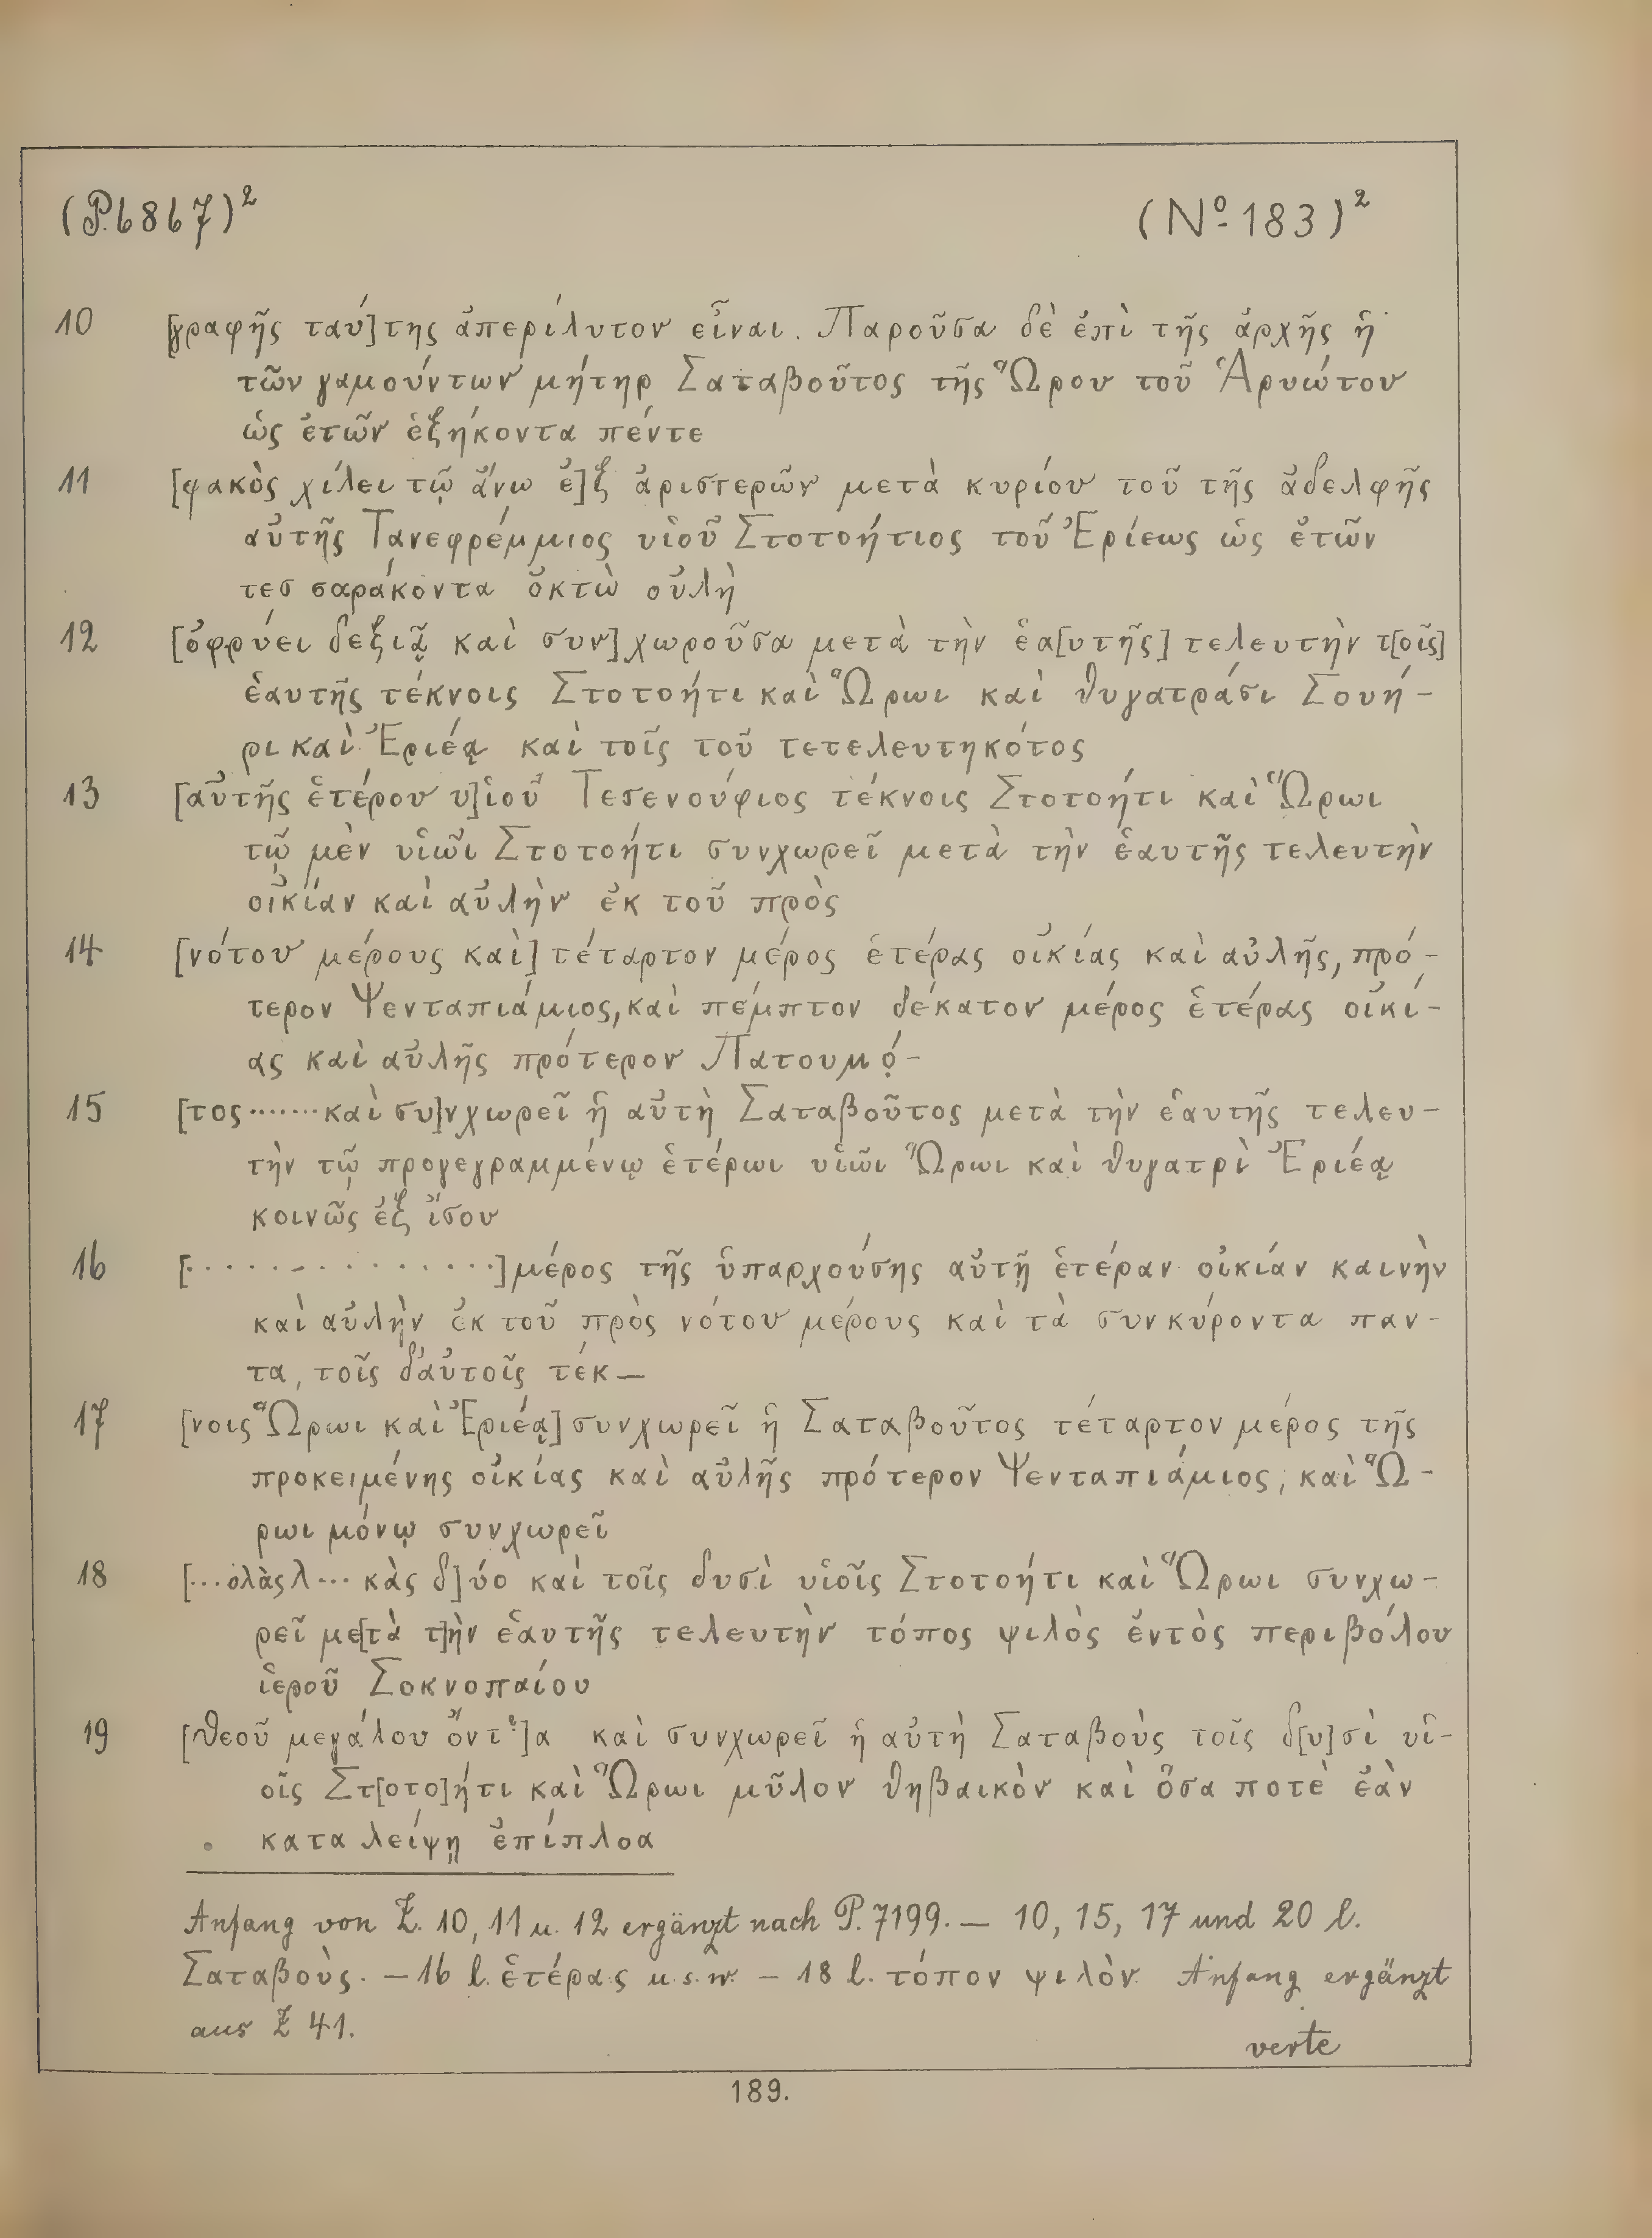 (P. 6867)² (No. 183)²
10 [γραφῆς ταύ]της ἀπερίλυτον εἶναι. Παροῦσα δὲ ἐπὶ τῆς ἀρχῆς ἡ
τῶν γαμούντων μήτηρ Σαταβοῦτος τῆς Ὥρου τοῦ Ἁρυώτου
ὡς ἐτῶν ἑξήκοντα πέντε
11 [φακὸς χίλει τῷ ἄνω ἐ]ξ ἀριστερῶν μετὰ κυρίου τοῦ τῆς ἀδελφῆς
αὐτῆς Τανεφρέμμιος υἱοῦ Στοτοήτιος τοῦ Ἐρίεως ὡς ἐτῶν
τεσσαράκοντα ὀκτὼ οὐλὴ
12 [ὀφρύει δεξιᾷ καὶ συν]χωροῦσα μετὰ τὴν ἑα[υτῆς] τελευτὴν τ[οῖς]
ἑαυτῆς τέκνοις Στοτοήτι καὶ Ὥρωι καὶ θυγατράσι Σουή-
ρι καὶ Ἐριέᾳ καὶ τοῖς τοῦ τετελευτηκότος
13 [αὐτῆς ἑτέρου υ]ἱοῦ Τεσενούφιος τέκνοις Στοτοήτι καὶ Ὥρωι
τῷ μὲν υἱῶι Στοτοήτι συνχωρεῖ μετὰ τὴν ἑαυτῆς τελευτὴν
οἰκίαν καὶ αὐλὴν ἐκ τοῦ πρὸς
14 [νότου μέρους καὶ] τέταρτον μέρος ἑτέρας οἰκίας καὶ αὐλῆς, πρό-
τερον Ψενταπιάμιος, καὶ πέμπτον δέκατον μέρος ἑτέρας οἰκί-
ας καὶ αὐλῆς πρότερον Πατουμό̣-
15 [τος ....... καὶ συ]νχωρεῖ ἡ αὐτὴ Σαταβοῦτος μετὰ τὴν ἑαυτῆς τελευ-
τὴν τῷ προγεγραμμένῳ ἑτέρωι υἱῶι Ὥρωι καὶ θυγατρὶ Ἐριέᾳ
κοινῶς ἐξ ἴσου
16 [...............] μέρος τῆς ὑπαρχούσης αὐτῇ ἑτέραν οἰκίαν καινὴν
καὶ αὐλὴν ἐκ τοῦ πρὸς νότου μέρους καὶ τὰ συνκύροντα παν-
τα, τοῖς δ'αὐτοῖς τέκ-
17 [νοις Ὥρωι καὶ Ἐριέᾳ] συνχωρεῖ ἡ Σαταβοῦτος τέταρτον μέρος τῆς
προκειμένης οἰκίας καὶ αὐλῆς πρότερον Ψενταπιάμιος, καὶ Ὥ-
ρωι μόνῳ συνχωρεῖ
18 [...ολὰς λ... κὰς δ]ύο καὶ τοῖς δυσὶ υἱοῖς Στοτοήτι καὶ Ὥρωι συνχω-
ρεῖ με[τὰ τ]ὴν ἑαυτῆς τελευτὴν τόπος ψιλὸς ἐντὸς περιβόλου
ἱεροῦ Σοκνοπαίου
19 [θεοῦ μεγάλου ὄντ]α καὶ συνχωρεῖ ἡ αὐτὴ Σαταβοὺς τοῖς δ[υ]σὶ υἱ-
οῖς Στ[οτο]ήτι καὶ Ὥρωι μῦλον θηβαικὸν καὶ ὅσα ποτὲ ἐὰν
καταλείψῃ ἐπίπλοα
Anfang von Z. 10, 11 u. 12 ergänzt nach P. 7199. — 10, 15, 17 und 20 l.
Σαταβοὺς. — 16 l. ἑτέρας u.s.w. — 18 l. τόπον ψιλὸν. Anfang ergänzt
aus Z 41.
verte
189.